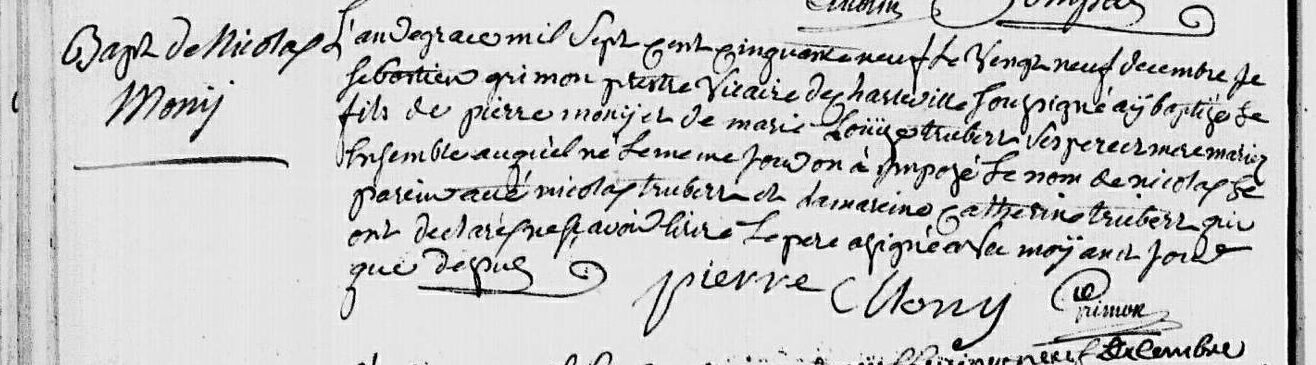 Bapt de Nicolas
Monij
L'an de grace mil Sept cent cinquante neuf Le Vingt neuf decembre Je
Sebastien grimon prestre Vicaire de charleville Soussigné aÿ baptizé Le
fils de pierre monij et de marie Loüise trubert Ses pere et mere mariez
Ensemble auquel né Le meme Jour on à Imposé Le nom de nicolas Le
parein a été nicolas trubert et La mareine Catherine trubert qui
ont declarés ne scavoir Ecrire Le pere a signé avec moÿ an et Jour
que dessus
pierre Mony
Grimon
decembre